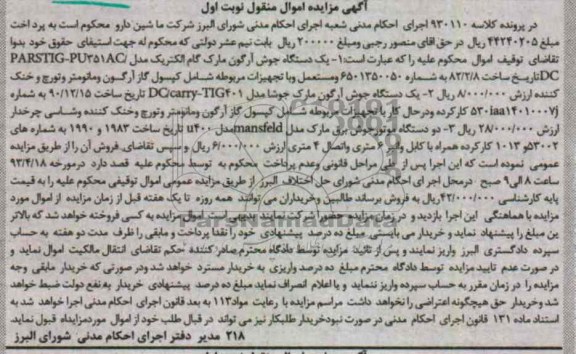 آگهی مزایده اموال منقول نوبت اول
در پرونده کلاسه ۹۳۰۱۱۰ اجرای احکام مدنی شعبه اجرای احکام مدنی شورای البرز شرکت ما شین دارو محکوم است به پرداخت
مبلغ ۴۴۲۴۰۲۰۵ ریال در حق اقای منصور رجبی ومبلغ ۲۰۰۰۰۰ ریال بابت نیم عشر دولتی که محکوم له جهت استیفای حقوق خود بدوا
تقاضای توقیف اموال محکوم علیه را که عبارت است:۱- یک دستگاه جوش آرگون مارک گام الکتریک مدل PARSTIG-PU۳۵۱AC/
DCتاریخ ساخت ۸۲/۲/۸ به شماره ۶۵۰۱۳۵۰۰۵۰ ومستعمل وبا تجهیزات مربوطه شامل کپسول گاز آرگسون ومانومتر وتورچ و خنک
کننده ارزش ۸/۰۰۰/۰۰۰ ریال ۲- یک دستگاه جوش آرگون مارک جوشا مدل DC/carry-TIG۴۰۱ تاریخ ساخت ۹۰/۱۲/۱۵ به شماره
۵۳۰iaa۱۴۱۰۱۰۰۰۷j کارکرده ودرحال کار با تجهیزات مربوطه شامل کپسول گاز آرگون ومانومتر وتورچ وخنک کننده وشاسی چرخدار
ارزش ۲۸/۰۰۰/۰۰۰ ریال ۳- دو دستگاه موتورجوش برق مارک مدل mansfeldمدل u۴۰۰ تاریخ ساخت ۱۹۸۳ و ۱۹۹۰ به شماره های
۵۳۰۰۲و ۱۰۱۳ کارکرده همراه با کابل وانبر ۶ متری واتصال ۴ متری ارزش ۶/۰۰۰/۰۰۰ ریال و سپس تقاضای فروش آن را از طریق مزایده
عمومی نموده است که این اجرا پس از طی مراحل قانونی وعدم پرداخت محکوم به توسط محکوم علیه قصد دارد درمورخه ۹۳/۴/۱۸
ساعت ۸ الی۹ صبح درمحل اجرای احکام مدنی شورای حل اختلاف البرز از طریق مزایده عمومی اموال توقیفی محکوم علیه را به قیمت
پایه کارشناسی ۴۲/۰۰۰/۰۰۰ ریال به فروش برساند طالبین وخریداران می توانند همه روزه تا یک هفته قبل از زمان مزایده از اموال مورد
مزایده با هماهنگی این اجرا بازدید و در زمان مزایده حضور شرکت نمایند بدیهی است اموال مزایده به کسی فروخته خواهد شد که بالاتر
ین مبلغ را پیشنهاد نماید و خریدار می بایستی مبلغ ده درصد پیشنهادی خود را نقدا پرداخت و مابقی را ظرف مدت دو هفته به حساب
سپرده دادگستری البرز واریز نمایند و پس از تائید مزایده توسط دادگاه محترم صادر کننده حکم تقاضای انتقال مالکیت اموال نماید و
در صورت عدم تایید مزایده توسط دادگاه محترم مبلغ ده درصد واریزی به خریدار مسترد خواهد شد ودر صورتی که خریدار مابقی وجه
مزایده را در زمان مقرر به حساب سپرده واریز ننماید و یا اعلام انصراف نماید مبلغ ده درصد پیشنهادی خریدار به نفع دولت ضبط خواهد
شد وخریدار حق هیچگونه اعتراضی را نخواهد داشت مراسم مزایده با رعایت مواد۱۱۳ به بعد قانون اجرای احکام مدنی اجرا خواهد شد به
استناد ماده ۱۳۱ قانون اجرای احکام مدنی در صورت نبودخریدار طلبکار نیز می تواند در قبال طلب خود از اموال موردمزایداه قبول نماید.
۲۱۸ مدیر دفتر اجرای احکام مدنی شورای البرز